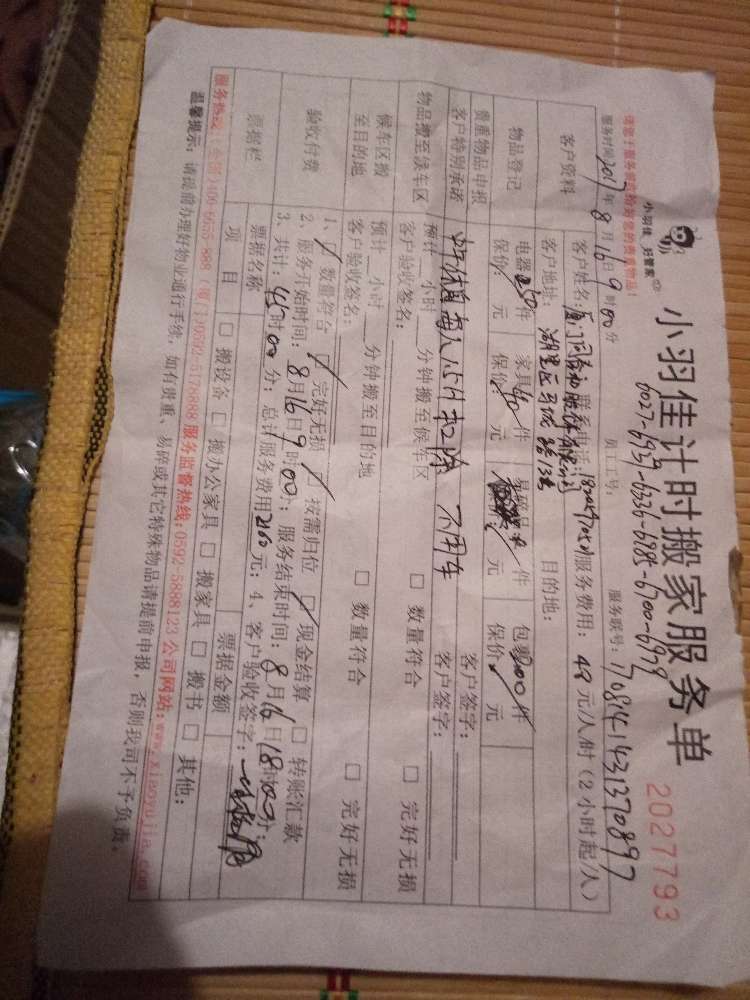 小羽佳 好管家
小羽佳计时搬家服务单
2027793
6027-6939-6336-6985-6700-6978
请您于服务前应检清您的贵重物品!
服务时间:2017年8月16日9时00分 员工工号: 服务联号:170814143137089 7
客户资料 客户姓名: 联系电话: 服务费用:48元/人/时(2小时起/人)
客户地址:湖里区 目的地:
物品登记 电器 件 家具 件 易碎品 件 包裹200件
保价 元 保价 元 保价 元 保价 元
贵重物品申报 客户签字:
客户特别承诺 扣除 不用车 客户签字:
物品搬至候车区 预计 小时 分钟搬至候车区 □ 数量符合 □ 完好无损
客户验收签名:
候车区搬至目的地 预计 小时 分钟搬至目的地 □ 数量符合 □ 完好无损
客户验收签名:
验收付费 1、□ 数量符合 □ 完好无损 □ 按需归位 □ 现金结算 □ 转账汇款
2、服务开始时间:8月16日9时00分;服务结束时间:8月16日18时00分;
3、共计:45时00分;总计服务费用2160元;4、客户验收签字:
票据栏 票据名称 票据金额
项目 □ 搬设备 □ 搬办公家具 □ 搬家具 □ 搬书 □ 其他:
服务热线:(全国)400-6055-888 (厦门)0592-5178888 服务监督热线:0592-5888123 公司网站:www.xiaoyujia.com
温馨提示:请提前办理好物业通行手续,如有贵重、易碎或其它特殊物品请提前申报,否则我司不予负责。